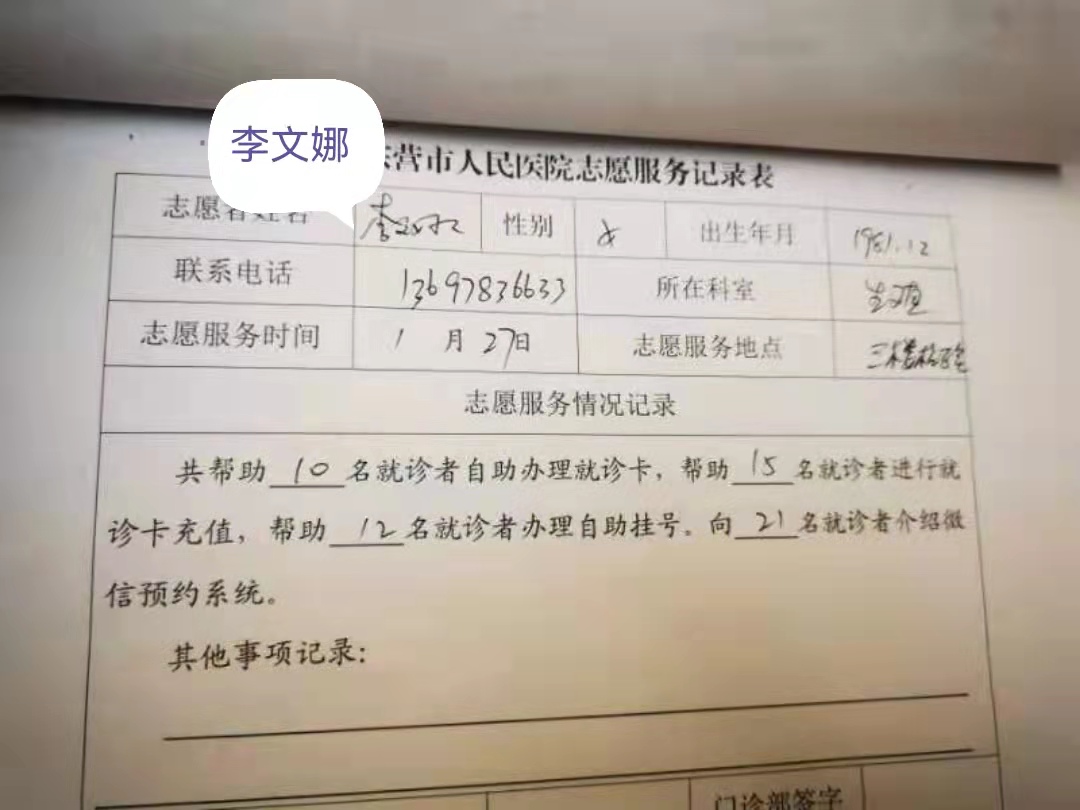 李文娜
东营市人民医院志愿服务记录表
志愿者姓名 李文娜 性别 女 出生年月 1981.12
联系电话 13697836633 所在科室
志愿服务时间 1月27日 志愿服务地点 三楼
志愿服务情况记录
共帮助 10 名就诊者自助办理就诊卡，帮助 15 名就诊者进行就
诊卡充值，帮助 12 名就诊者办理自助挂号。向 21 名就诊者介绍微
信预约系统。
其他事项记录：
门诊部签字